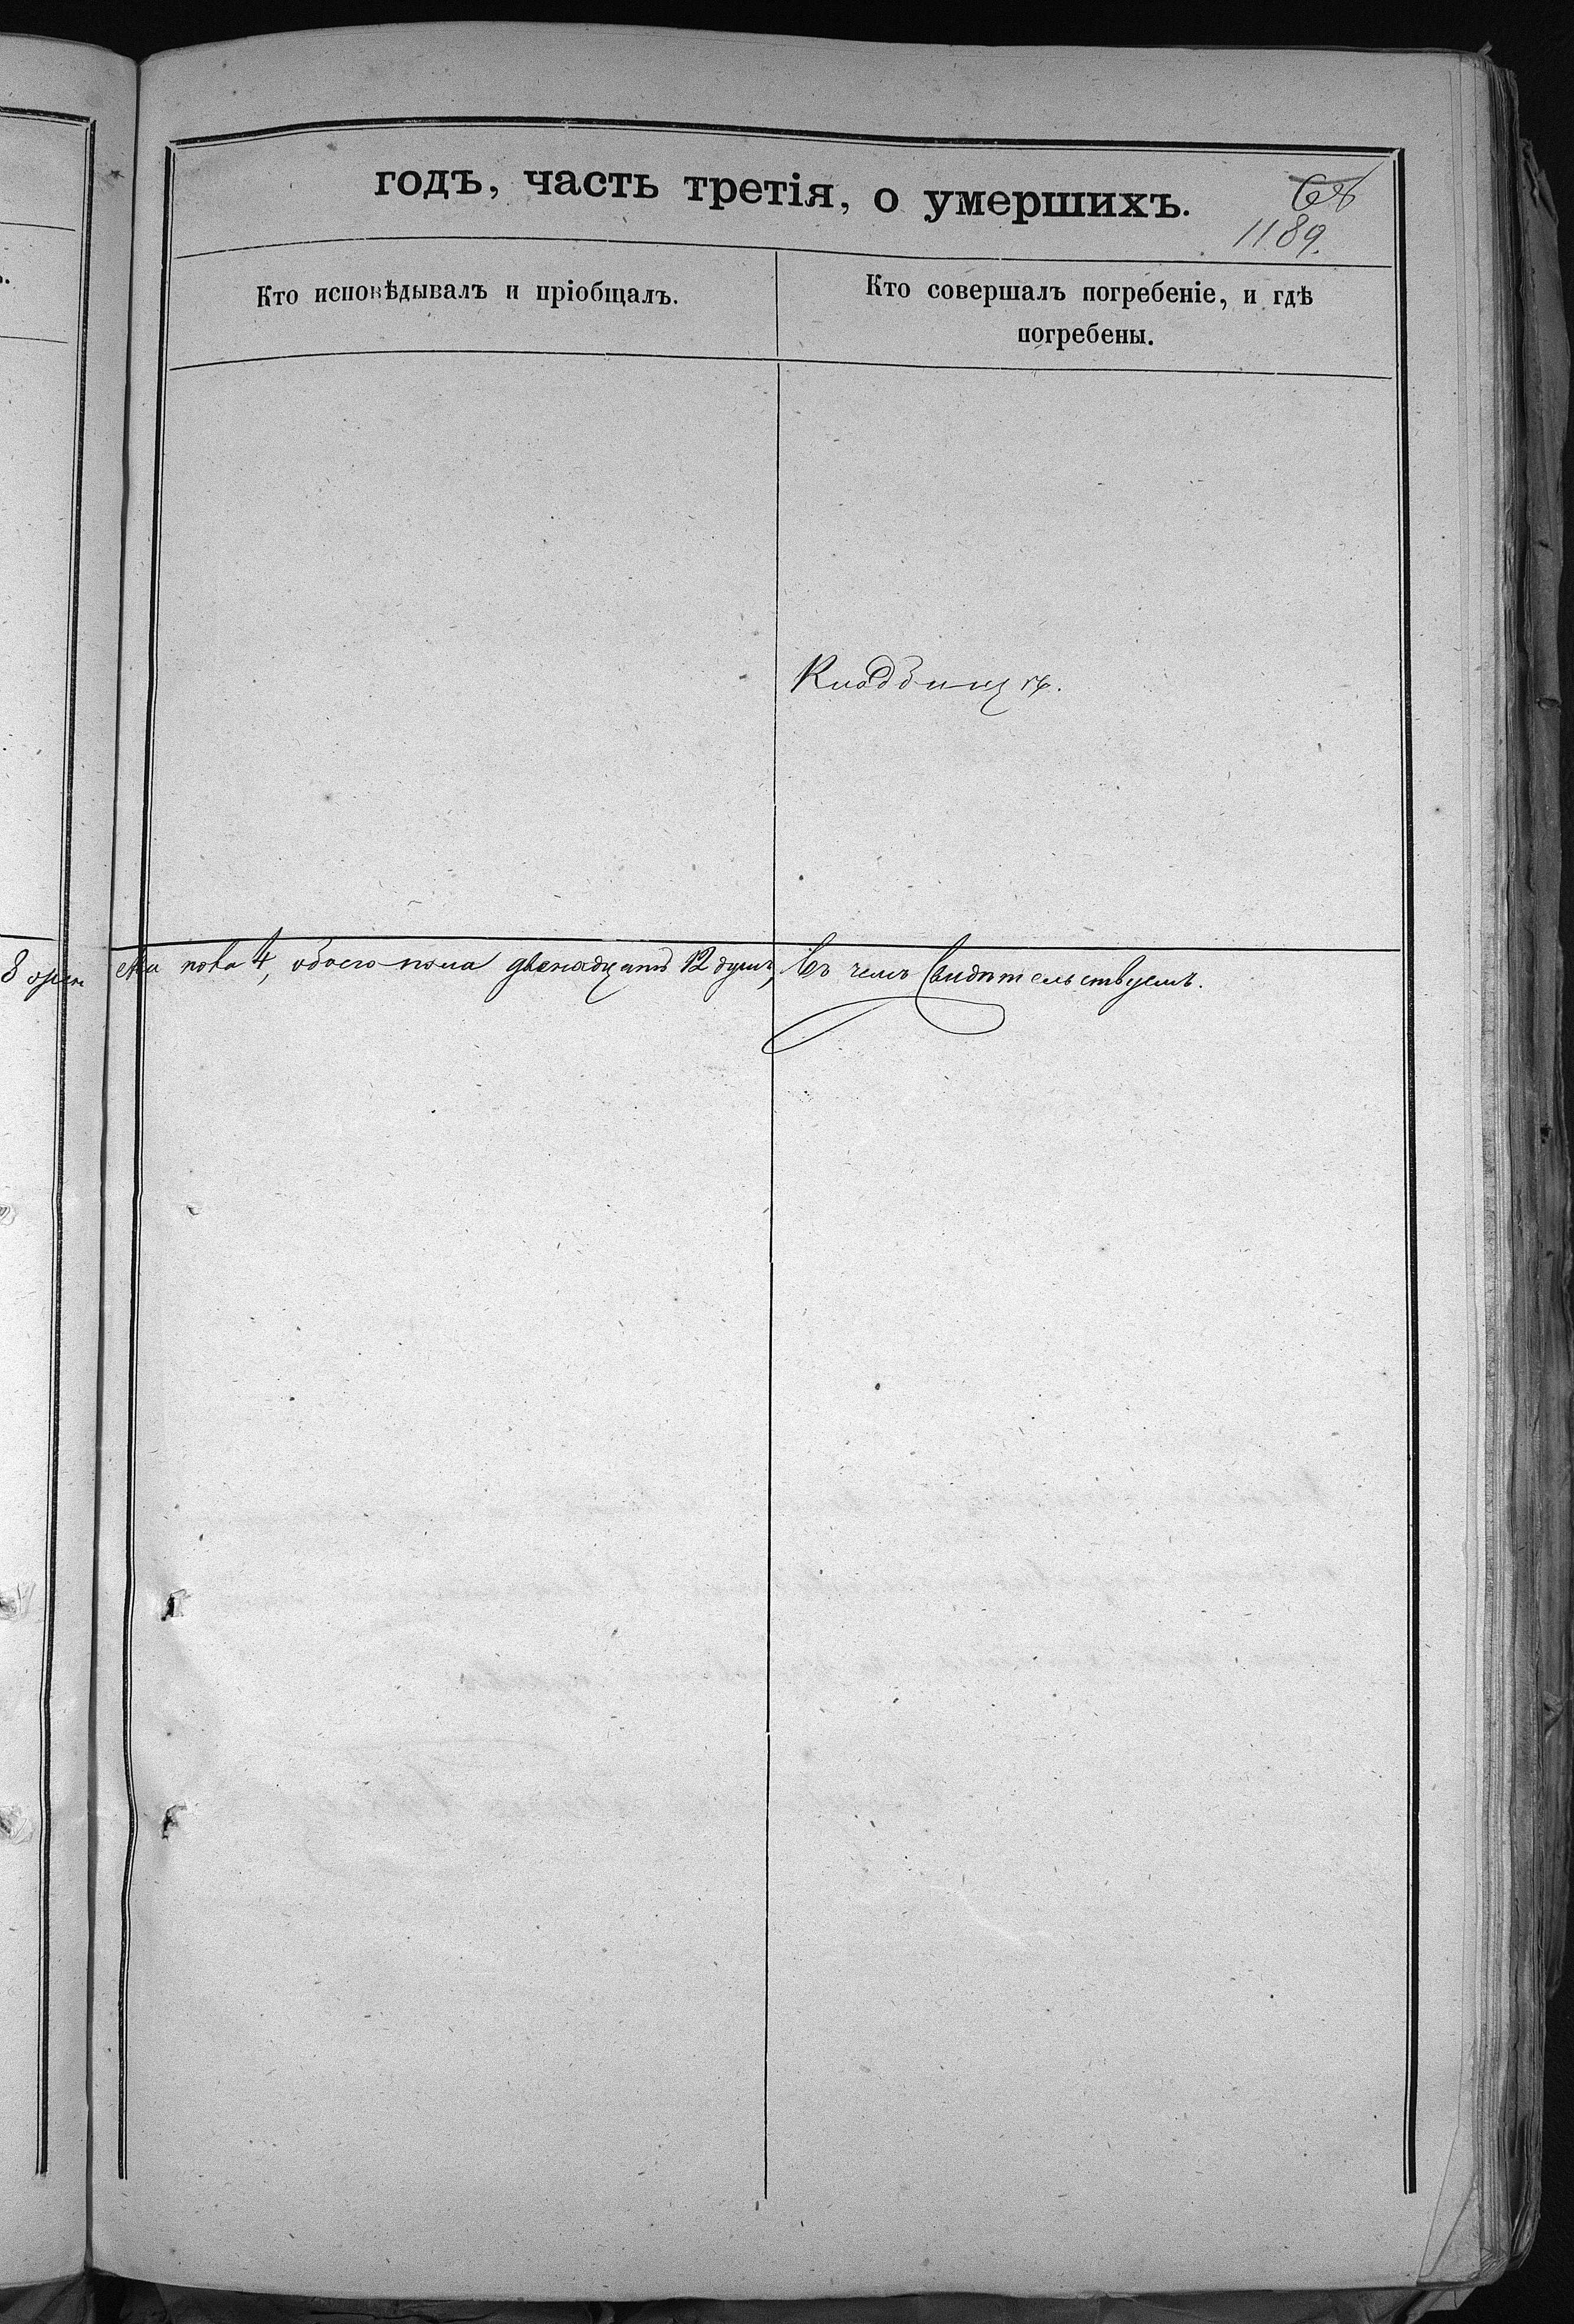 годъ, часть третія, о умершихъ.
68
1189.
Кто исповѣдывалъ и пріобщалъ.
Кто совершалъ погребеніе, и гдѣ
погребены.
Кладбищѣ.
8 жен ска пола 4, обоего пола двенадцать 12 душъ, въ чемъ свидѣтельствуемъ.